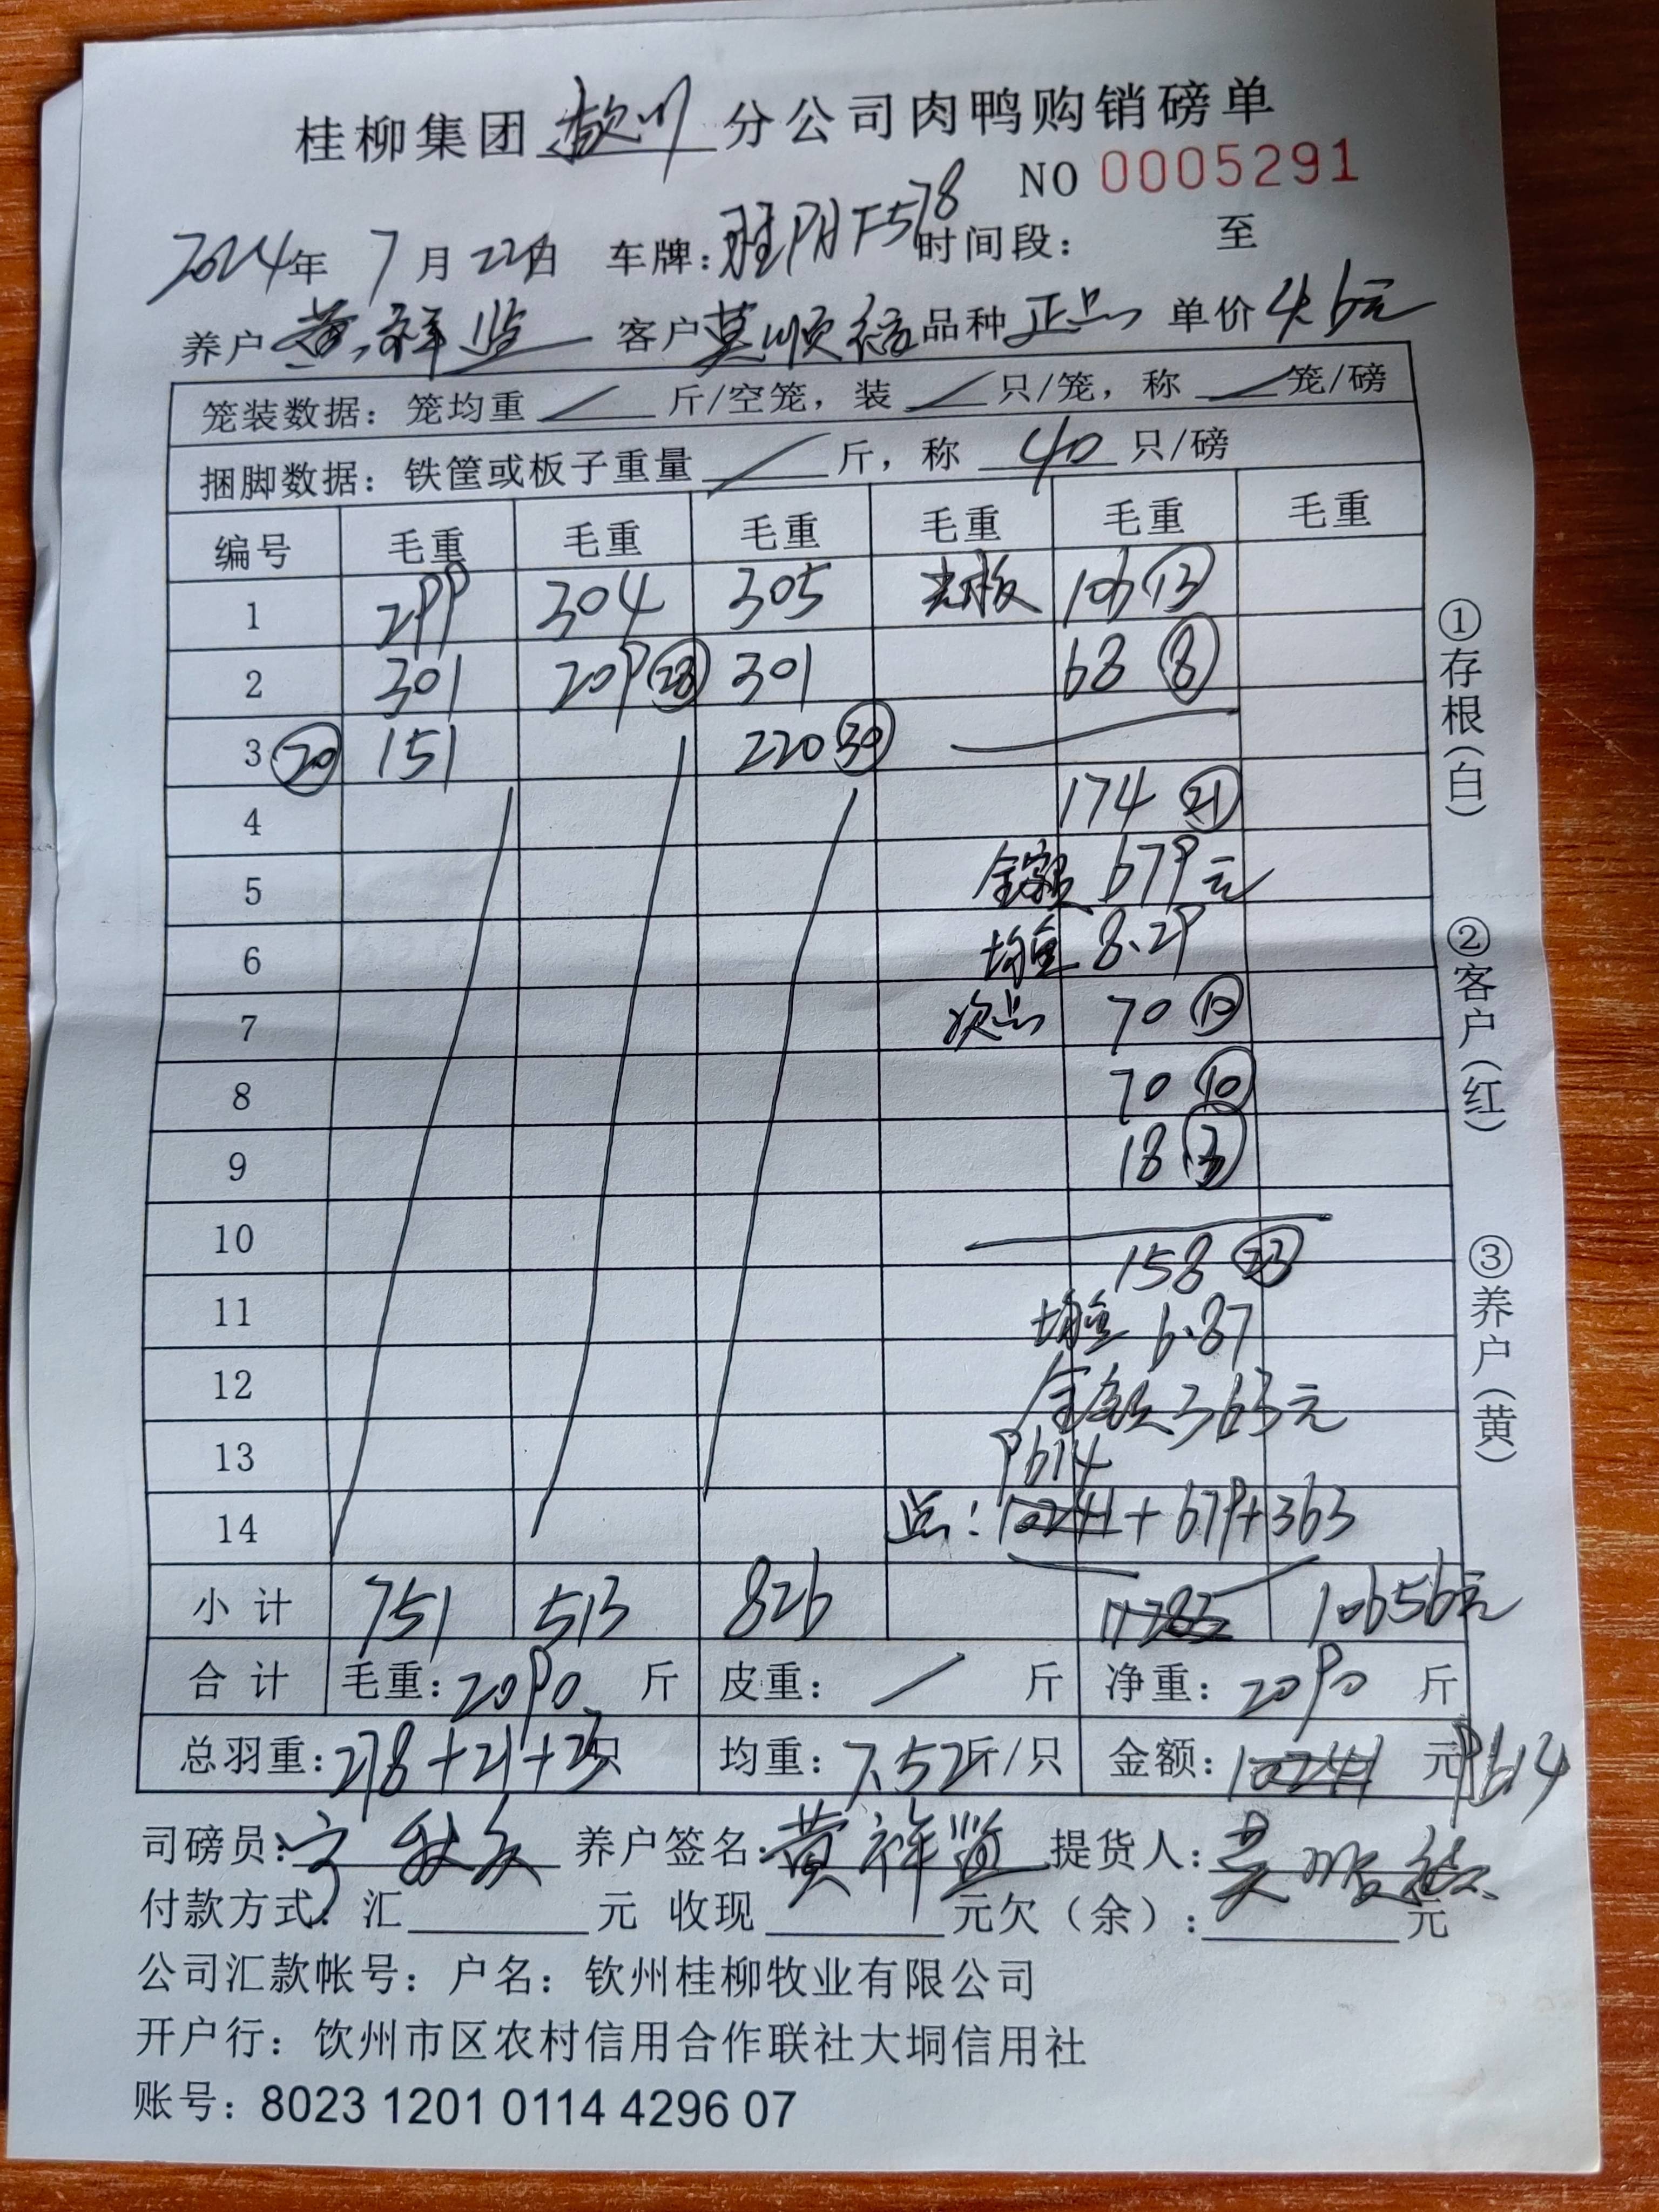 桂柳集团钦州分公司肉鸭购销磅单
NO 0005291
2024年 7月22日 车牌: F578 时间段: 至
养户 黄祥监 客户 莫顺德 品种 正品 单价 4.6元
笼装数据: 笼均重 / 斤/空笼, 装 / 只/笼, 称 / 笼/磅
捆脚数据: 铁筐或板子重量 / 斤, 称 40 只/磅
编号 毛重 毛重 毛重 毛重 毛重 毛重
1 299 304 305 光板 106 ⑬
2 301 209 ㉘ 301 68 ⑧
3 ⑳ 151 220 ㉚
4 174 ㉑
5 金额 679元
6 均重 8.29
7 次品 70 ⑩
8 70 ⑩
9 18 ③
10 158 ㉓
11 均重 6.87
12 金额 363元
13 9614
14 总: 10241 + 679 + 363
小计 751 513 826 11283 10656元
合计 毛重: 2090 斤 皮重: / 斤 净重: 2090 斤
总羽重: 278+21+23只 均重: 7.52斤/只 金额: 10241 元 9614
司磅员: 宁 养户签名: 黄祥监 提货人: 莫顺德
付款方式: 汇 元 收现 元欠(余): 元
公司汇款帐号: 户名: 钦州桂柳牧业有限公司
开户行: 饮州市区农村信用合作联社大垌信用社
账号: 8023 1201 0114 4296 07
①存根(白)
②客户(红)
③养户(黄)